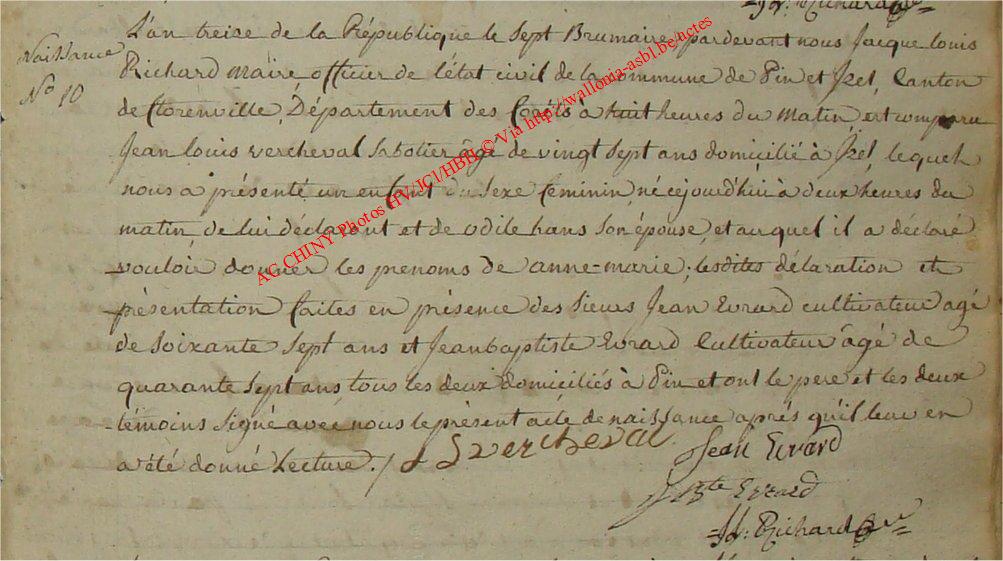 J.L. Richard
L'an treize de la République le sept Brumaire pardevant nous Jacque louis
Naissance
N° 10
Richard Maire officier de l'état civil de la Commune de Pin et Izel, Canton
de florenville, Département des forêts, à huit heures du Matin, est comparu
Jean louis vercheval sabotier âgé de vingt sept ans domicilié à Izel, lequel
nous a présenté un enfant du sexe feminin, né cejourd'hui à deux heures du
matin, de lui déclarant et de odile hans son épouse, et auquel il a déclaré
vouloir donner les prenoms de anne-marie; lesdites délaration et
présentation faites en présence des sieurs Jean Evrard cultivateur agé
de soixante sept ans et Jean baptiste Evrard Cultivateur âgé de
quarante sept ans, tous les deux domiciliés à Pin et ont le pere et les deux
témoins signé avec nous le présent acte de naissance après qu'il leur en
a été donné Lecture./.
J L verCheval
Jean Evrard
J Bte Evrard
J.L. Richard
AG CHINY Photos HV/JCl/HBH © Via http://wallonia-asbl.be/actes